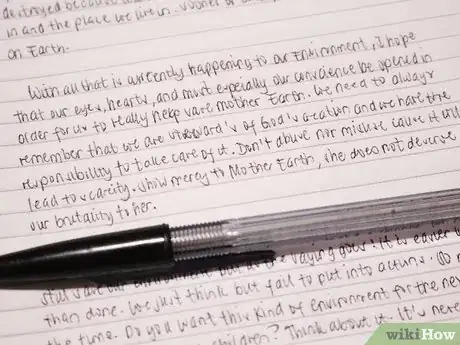 destroyed because
in and the place we live in. Sooner or
on Earth.
With all that is currently happening to our Environment, I hope
that our eyes, hearts, and most especially our conscience be opened in
order for us to really help save mother Earth. We need to always
remember that we are steward's of God's creation and we have the
responsibility to take care of it. Don't abuse nor misuse cause it will
lead to scarcity. Show mercy to Mother Earth, she does not deserve
our brutality to her.
still save our environment but as the saying goes: It is easier
than done. We just think but fail to put into actions. Do
time. Do you want this kind of environment for the new
children? Think about it. It's never
wikiHow